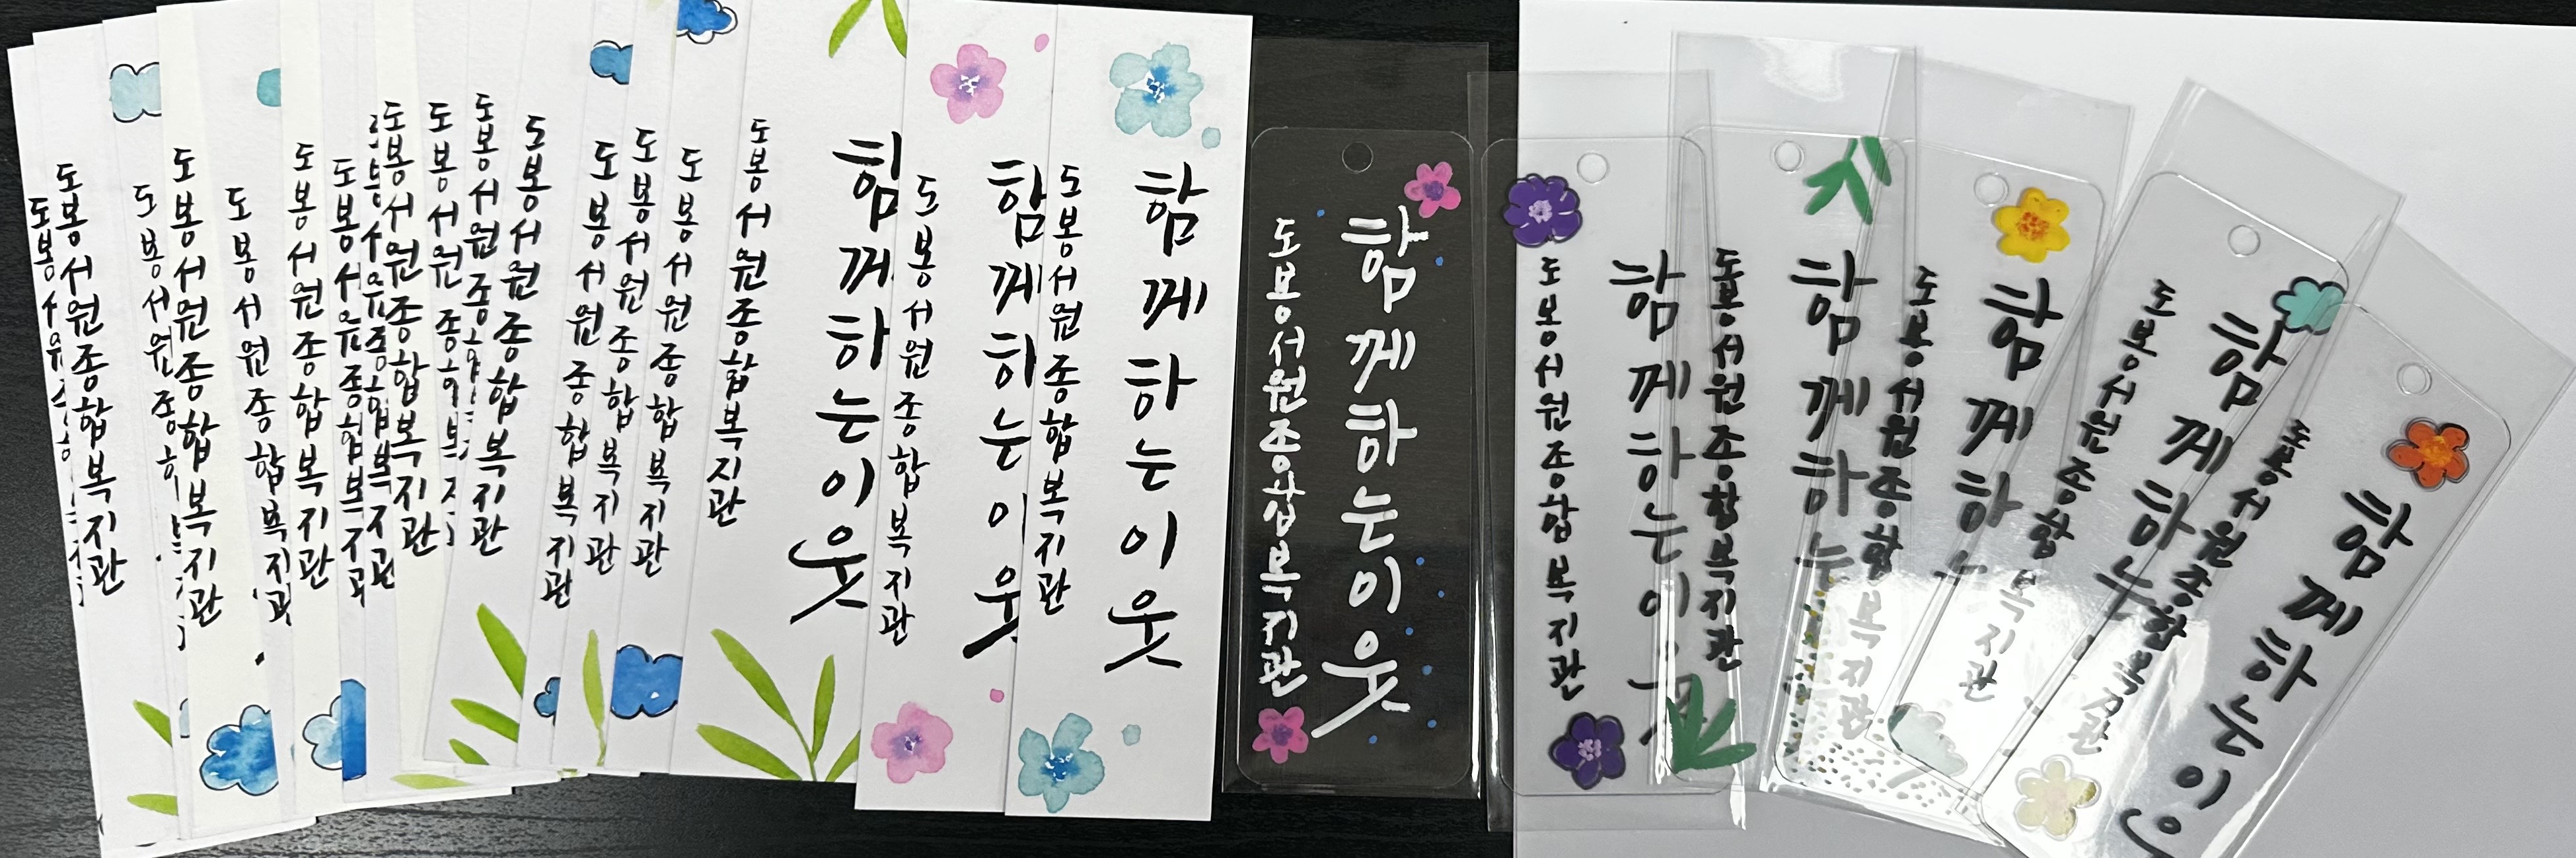 도봉서원
도봉서원종합복지관
도봉서원종
도봉서원종합복지관
도봉서원종합복지관
도봉서원종합복지관
도봉서원종합복지관
도봉서원종합복지관
도봉서원종합복지관
도봉서원종
도봉서원종
도봉서원종합복지관
도봉서원종합복지관
도봉서원종합복지관
도봉서원종합복지관
도봉서원종합복지관
함께하는이웃
도봉서원종합복지관
함께하는이웃
도봉서원종합복지관
함께하는이웃
도봉서원종합복지관
함께하는이웃
도봉서원종합복지관
함께하는이웃
도봉서원종합복지관
함께하는
도봉서원종합복지관
함께하는
도봉서원종합복지관
함께하는
도봉서원종합복지관
함께하는이